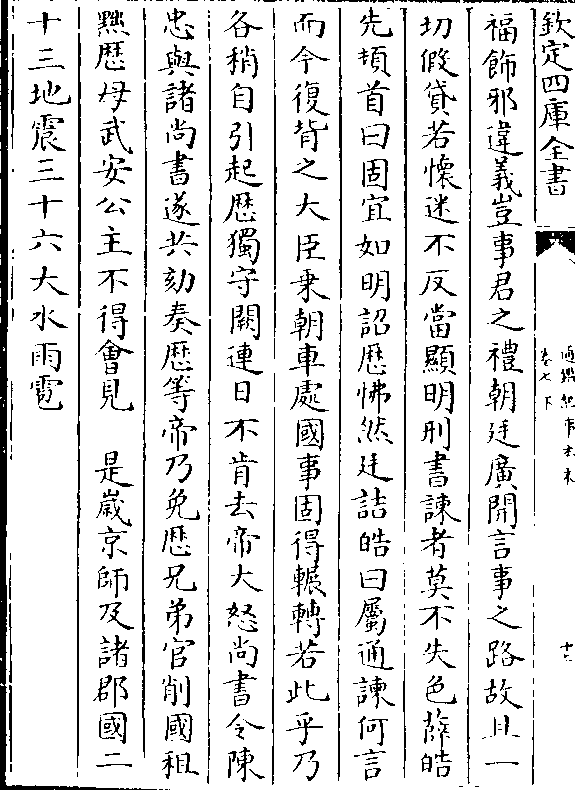 欽定四庫全書
通鑑紀事本末
卷七下
十二
福飾邪違義豈事君之禮朝廷廣開言事之路故且一
切假貸若懷迷不反當顯明刑書諫者莫不失色薛皓
先頓首曰固宜如明詔歴怫然廷詰皓曰屬通諫何言
而今復背之大臣乗朝車處國事固得輾轉若此乎乃
各稍自引起歴獨守闕連日不肯去帝大怒尚書令陳
忠與諸尚書遂共劾奏歴等帝乃免歴兄弟官削國租
黜歴母武安公主不得會見　是嵗京師及諸郡國二
十三地震三十六大水雨雹